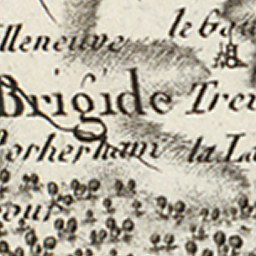 lleneuve le Go
Brigide Trev
Porherhant la La
our